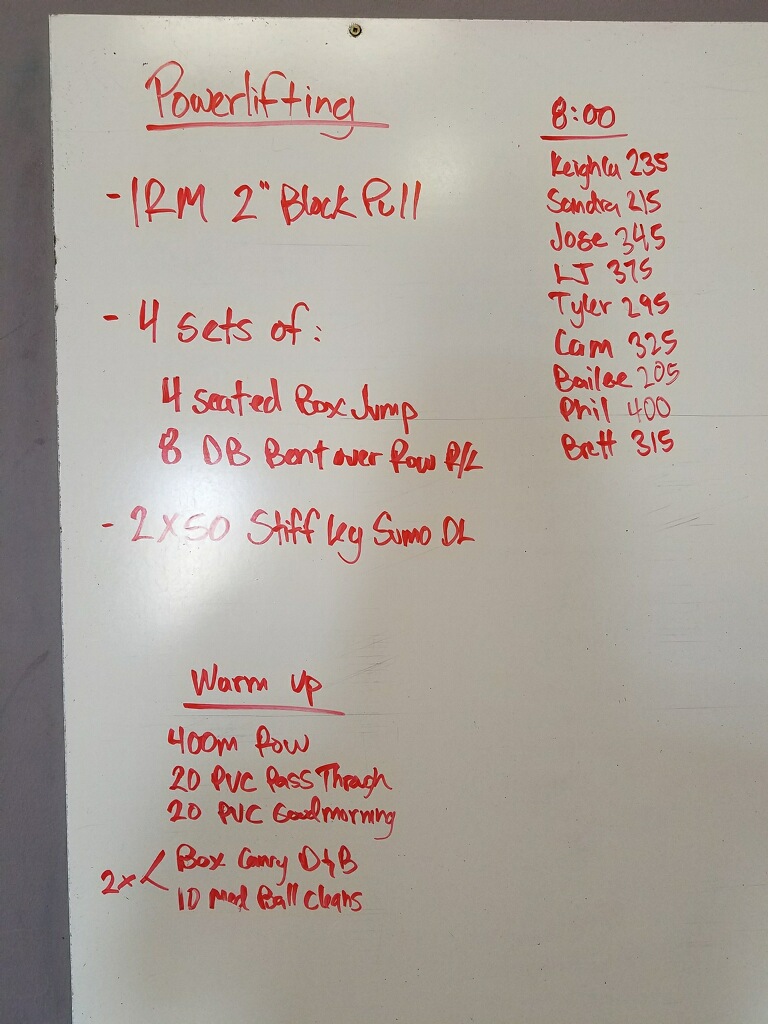 Powerlifting
- 1RM 2" Block Pull
- 4 sets of:
4 seated Box Jump
8 DB Bent over Row R/L
- 2x50 Stiff leg Sumo DL
Warm up
400m Row
20 PVC Pass Through
20 PVC Goodmorning
2x <
Box Carry D&B
10 Med Ball Cleans
8:00
Keighla 235
Sandra 215
Jose 345
LJ 375
Tyler 295
Cam 325
Bailee 205
Phil 400
Brett 315